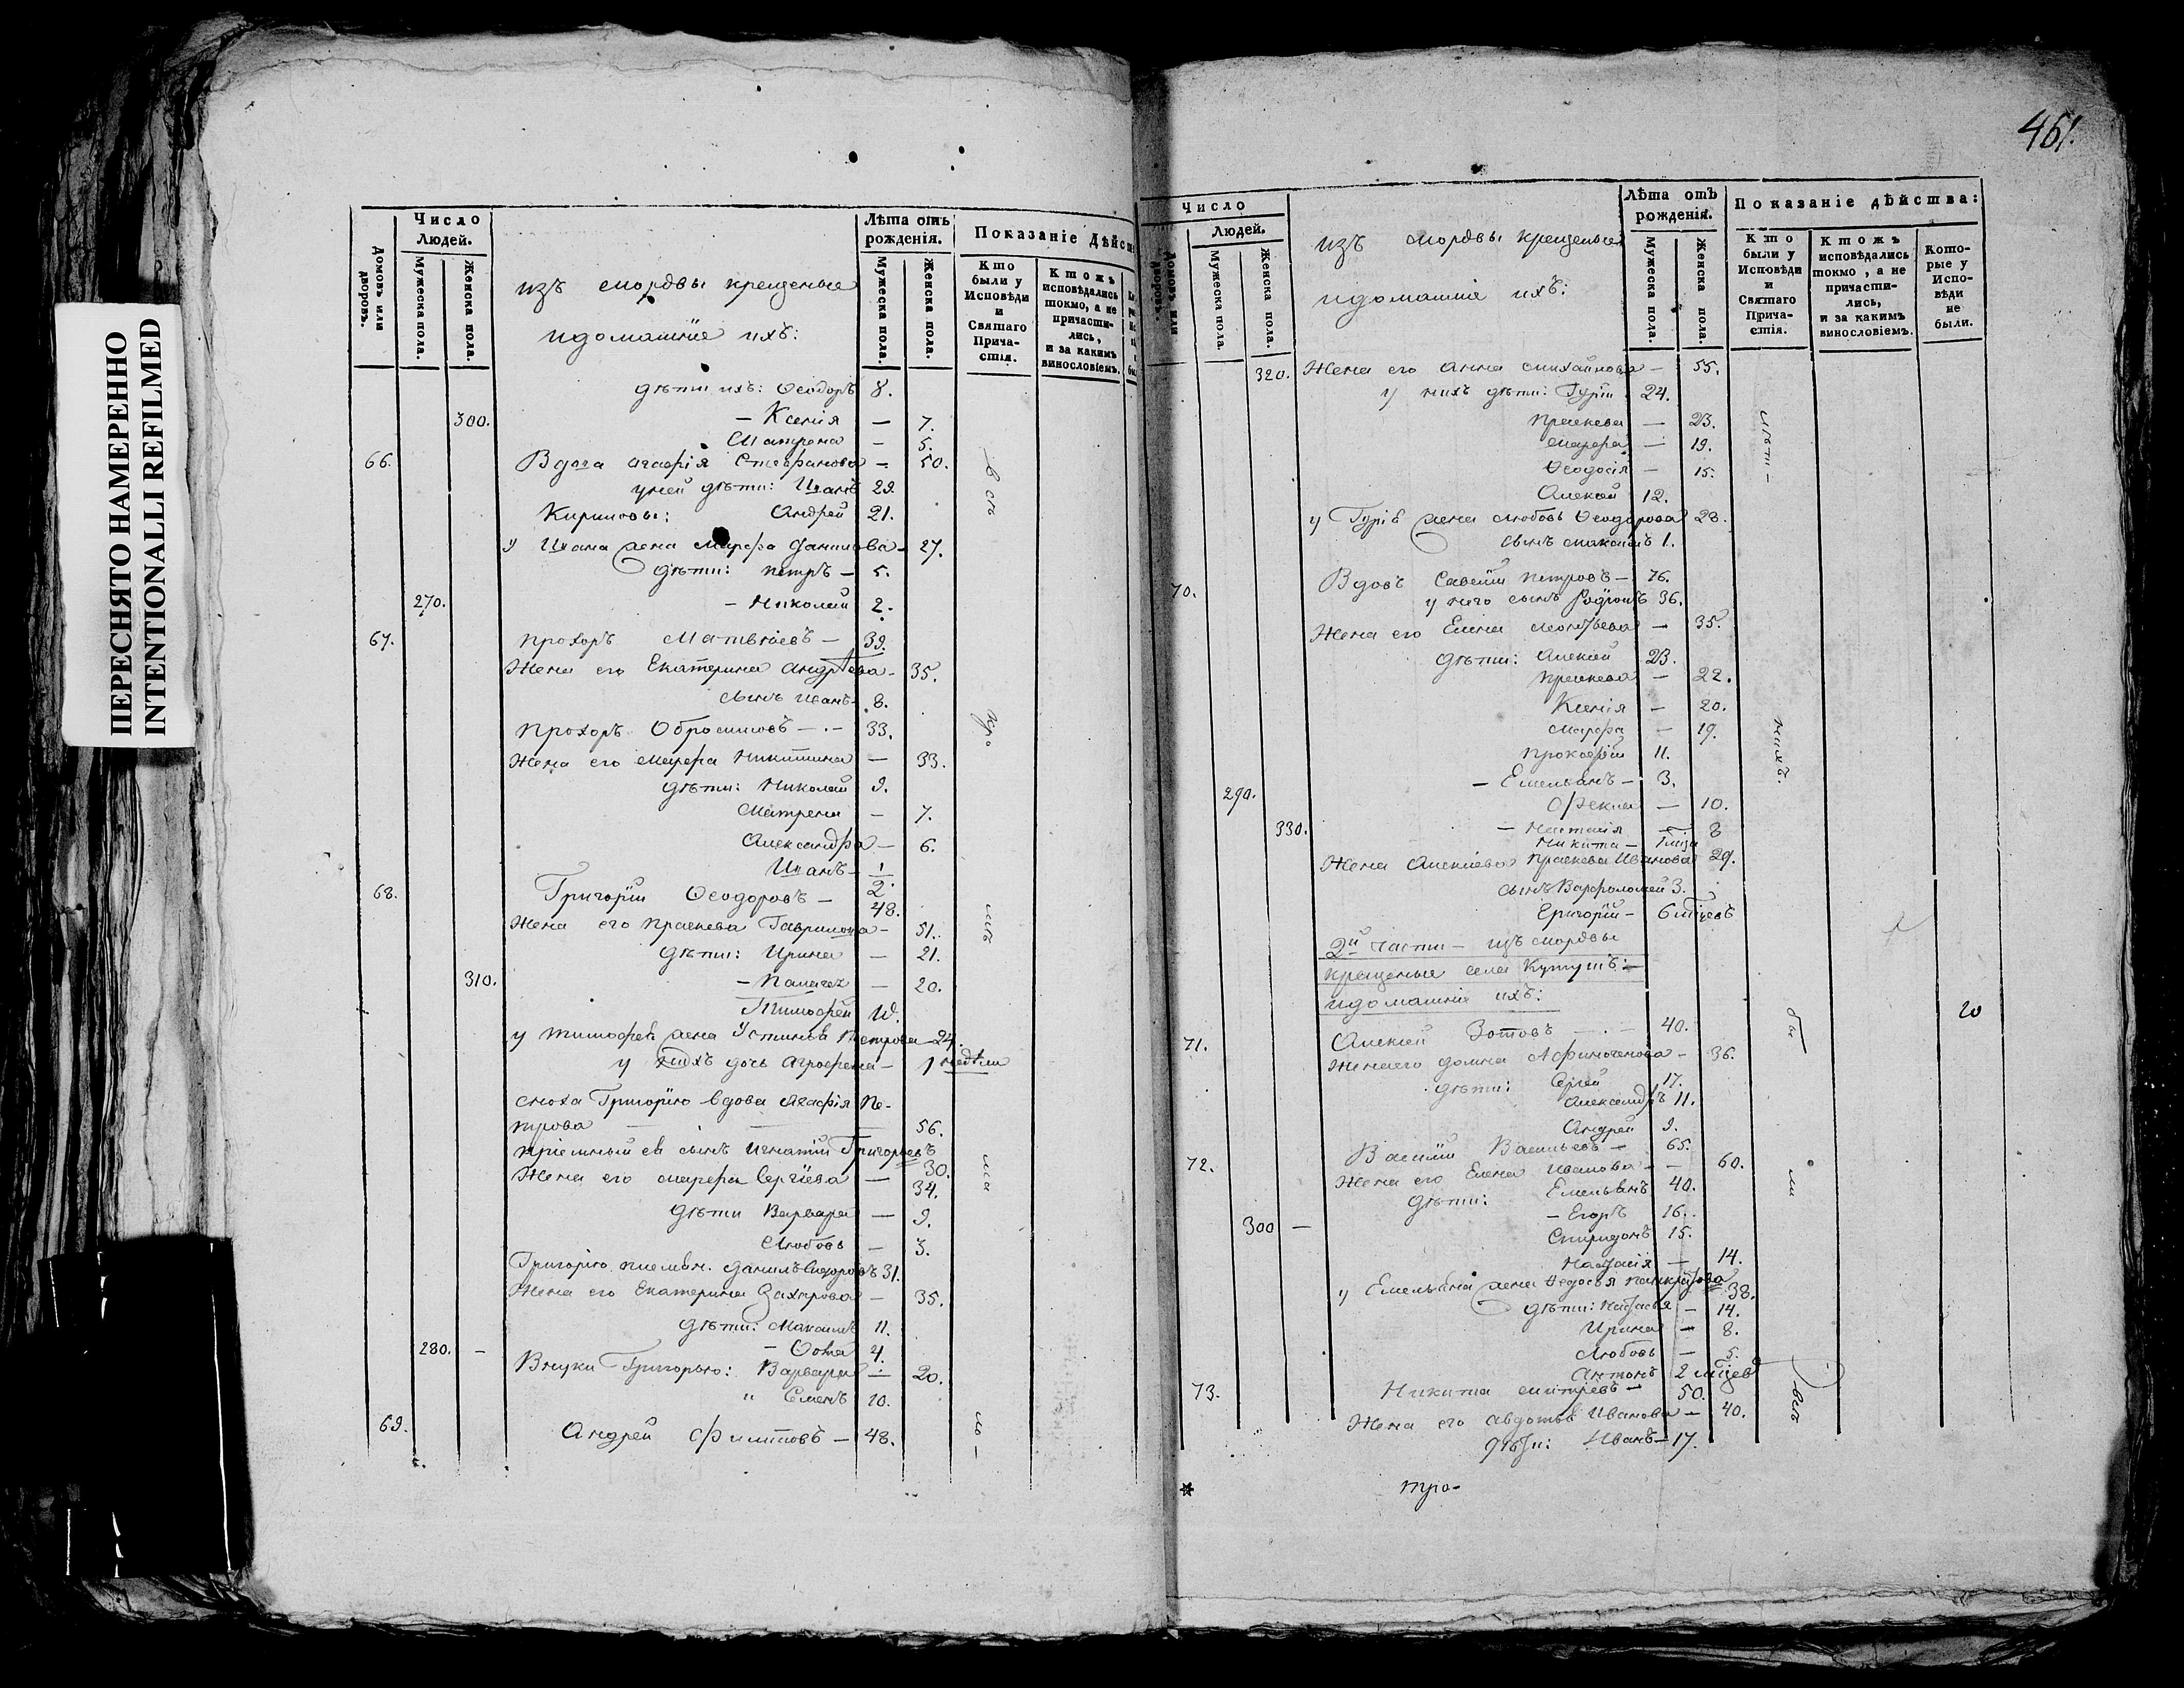 ПЕРЕСНЯТО НАМЕРЕННО
INTENTIONALLI REFILMED
Домовъ или дворовъ.
Число Людей.
Мужеска пола.
Женска пола.
изъ мордвы крещеные
идомашніе ихъ:
Лѣта отъ рожденія.
Мужеска пола.
Женска пола.
Показаніе Дѣйс
Кто были у Исповѣди и Святаго Прича- стія.
Ктожъ исповѣдались токмо, а не причасти- лись, и за какимъ винословіемъ.
дѣти ихъ: Ѳеодоръ 8.
300. – Ксенія – 7.
Матрена – 5.
66. Вдова Агафія Стефанова – 50.
уней дѣти: Иванъ 29.
Кириловы: Андрей 21.
У Ивана жена Марфа Данилова – 27.
дѣти: Петръ – 5.
270. – Николай 2.
67. Прохоръ Матвѣевъ – 39.
Жена его Екатерина Андрѣева – 35.
сынъ Иванъ – 8.
Прохоръ Обросимовъ – 33.
Жена его Марфа Никитина – 33.
дѣти: Николай 9.
Матрена – 7.
Александра – 6.
Иванъ – 1/2
68. Григорій Ѳеодоровъ – 48.
Жена его Праскева Гаврилова – 51.
дѣти: Ирина – 21.
310. – – 20.
Тимофей
у Тимофея жена Устинья Петрова – 24.
у нихъ дочь Агрофена – 1 недѣли
сноха Григорію вдова Агафія Пе-
трова – 56.
пріемный ея сынъ Игнатій Григорьевъ 30.
Жена его Марфа Сергіева – 34.
дѣти Варвара – 9.
Любовь – 3.
Григорію племян. Данилъ Сидоровъ 31.
Жена его Екатерина Захарова – 35.
дѣти: Максимъ 11.
280. – – Ѳома 4.
Внуки Григорью: Варвара – 20.
" Семенъ 10.
69. Андрей Филиповъ – 48.
461.
Домовъ или дворовъ.
Число Людей.
Мужеска пола.
Женска пола.
изъ мордвы крещеные
идомашніе ихъ:
Лѣта отъ рожденія.
Мужеска пола.
Женска пола.
Показаніе дѣйства:
Кто были у Исповѣди и Святаго Прича- стія.
Ктожъ исповѣдались токмо, а не причасти- лись, и за какимъ винословіемъ.
Кото- рые у Испо- вѣди не были.
320. Жена его Анна Михайлова – 55.
у нихъ дѣти: Гурій 24.
Праскева – 23.
Марфа – 19.
Ѳеодосія – 15.
Алексей 12.
у Гурія жена Любовь Ѳеодорова 28.
сынъ Максимъ 1.
70. Вдовъ Савелій Петровъ – 76.
у него сынъ Родіонъ 36.
Жена его Елена Леонтьева – 35.
дѣти: Алексей 23.
Праскева – 22.
Ксенія – 20.
Марфа – 19.
Прокофій 11.
290. – Емельянъ – 3.
Фекла – 10.
330. – Наталія – 8
Никита –
Жена Алексіева Праскева Иванова 29.
сынъ Варфоломей 3.
Григорій – 6 мѣсецовъ
2й части – изъ мордвы
крещеные села Кутушъ: –
идомашніе ихъ:
20
71. Алексей Зотовъ – 40.
Жена его Домна – 36.
дѣти: Сергей 17.
Александръ 11.
Андрей 9.
72. Василій Васильевъ – 65.
Жена его Елена Иванова – 60.
дѣти: Емельянъ 40.
300 – – Егоръ 16.
Спиридонъ 15.
Настасія – 14.
у Емельяна жена Ѳедосья Панкратова 38.
дѣти: Настасья – 14.
Ирина – 8.
Любовь – 5.
Антонъ 2
73. Никита – 50.
Жена его Авдотья Иванова – 40.
дѣти: Иванъ – 17.
тро-